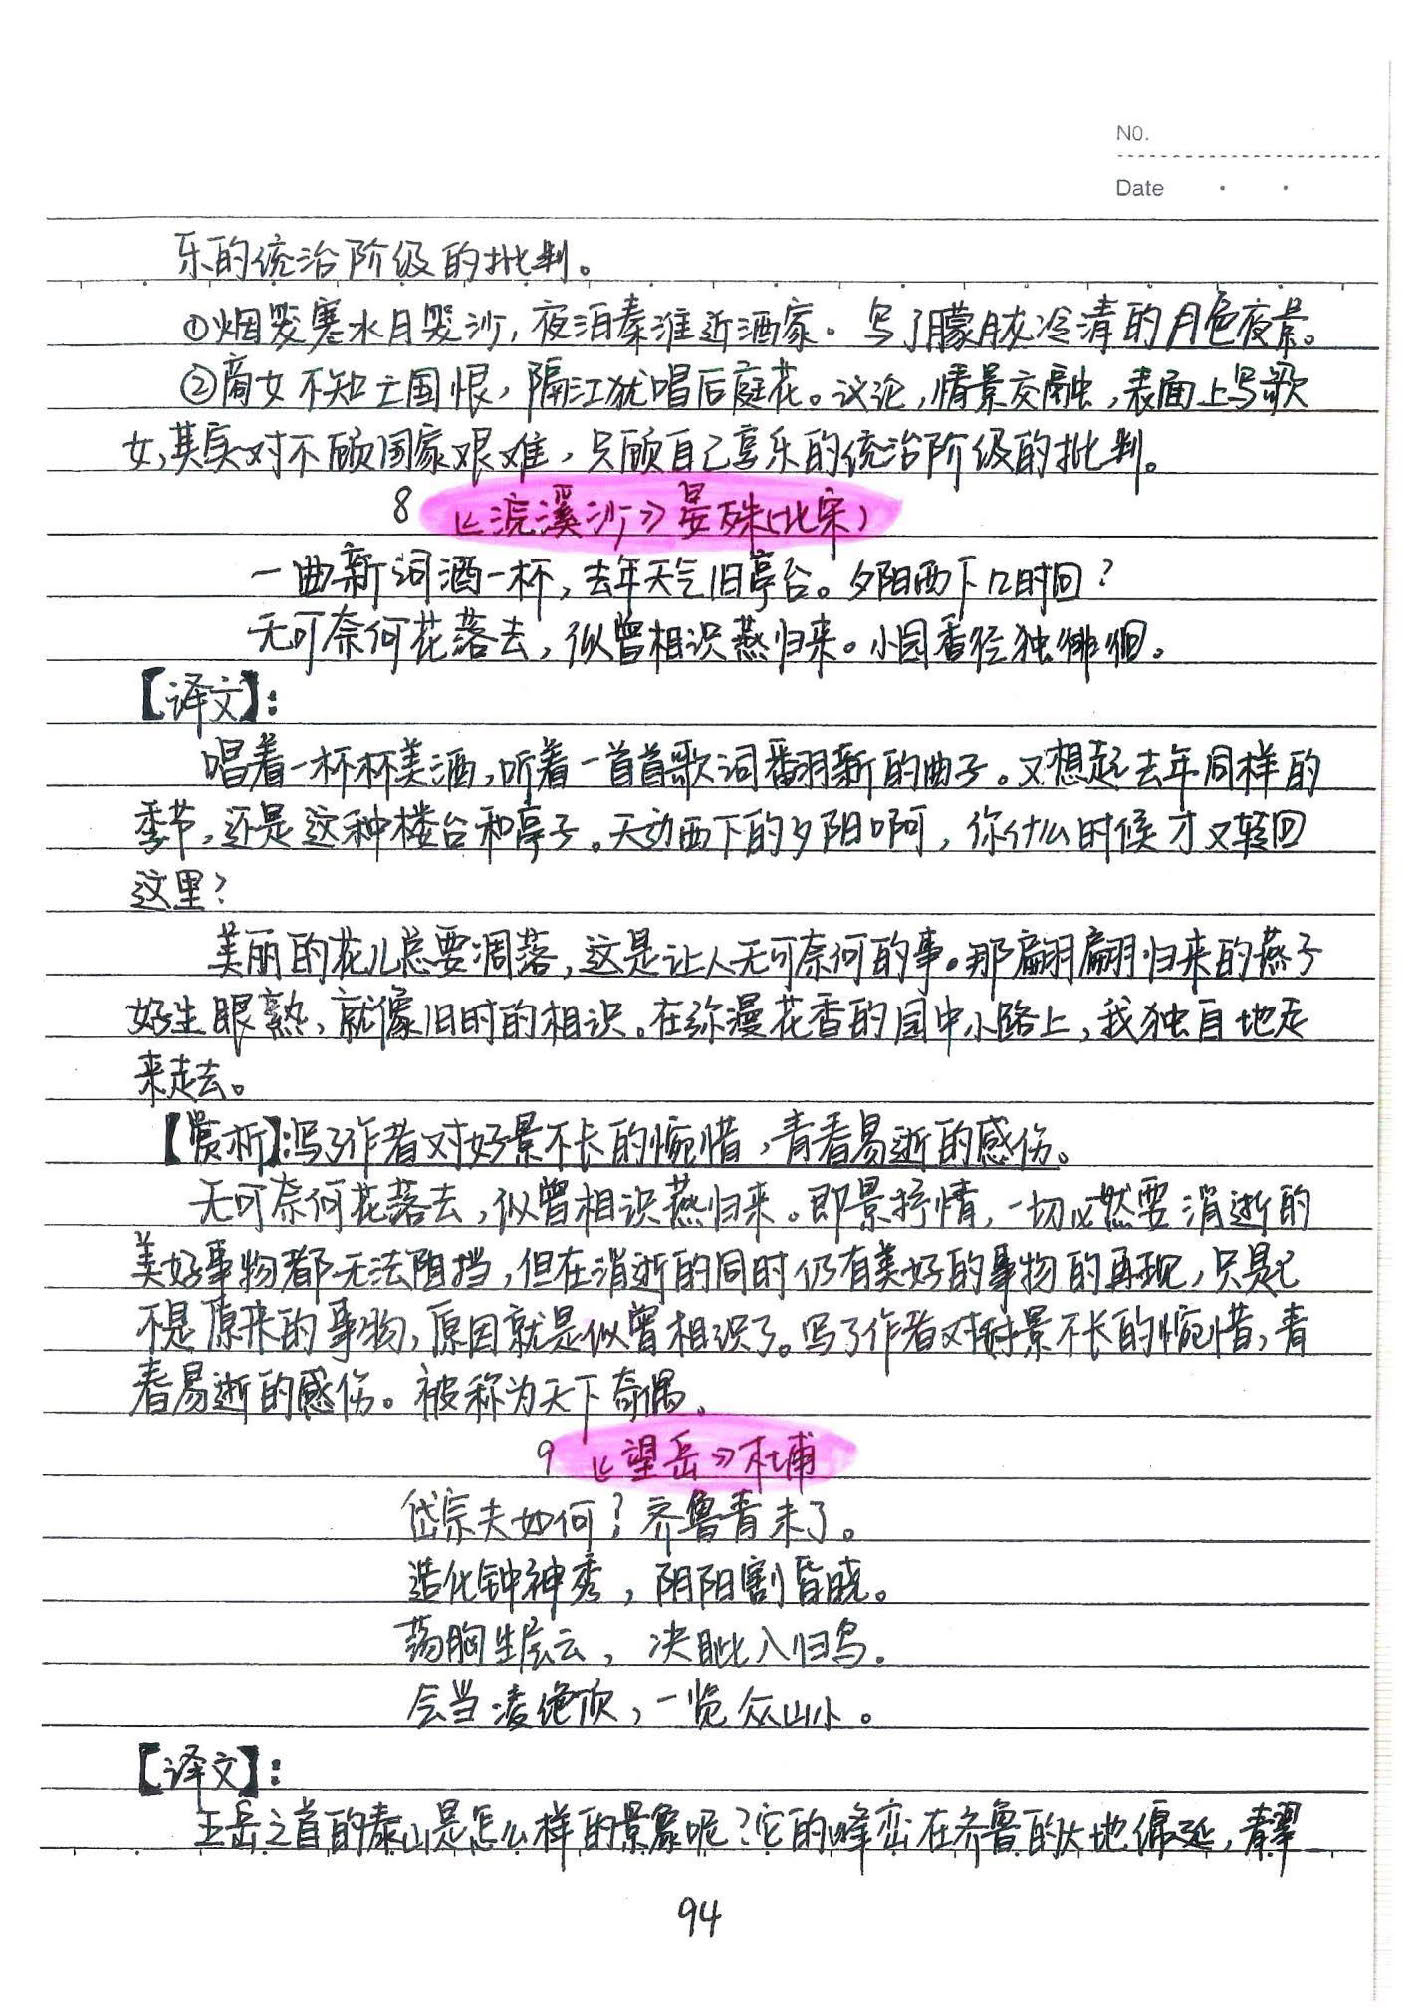 NO.
Date
乐的统治阶级的批判。
①烟笼寒水月笼沙，夜泊秦淮近酒家。写了朦胧冷清的月色夜景。
②商女不知亡国恨，隔江犹唱后庭花。议论，情景交融，表面上写歌
女，其实对不顾国家艰难，只顾自己享乐的统治阶级的批判。
8 《浣溪沙》晏殊(北宋)
一曲新词酒一杯，去年天气旧亭台。夕阳西下几时回？
无可奈何花落去，似曾相识燕归来。小园香径独徘徊。
【译文】：
唱着一杯杯美酒，听着一首首歌词翻新的曲子。又想起去年同样的
季节，还是这种楼台和亭子。天边西下的夕阳啊，你什么时候才又转回
这里？
美丽的花儿总要凋落，这是让人无可奈何的事。那翩翩归来的燕子
好生眼熟，就像旧时的相识。在弥漫花香的园中小路上，我独自地走
来走去。
【赏析】写了作者对好景不长的惋惜，青春易逝的感伤。
无可奈何花落去，似曾相识燕归来。即景抒情，一切必然要消逝的
美好事物都无法阻挡，但在消逝的同时仍有美好的事物的再现，只是已
不是原来的事物，原因就是似曾相识了。写了作者对好景不长的惋惜，青
春易逝的感伤。被称为天下奇偶。
9 《望岳》杜甫
岱宗夫如何？齐鲁青未了。
造化钟神秀，阴阳割昏晓。
荡胸生层云，决眦入归鸟。
会当凌绝顶，一览众山小。
【译文】：
五岳之首的泰山是怎么样的景象呢？它的峰峦在齐鲁的大地绵延，青翠
94